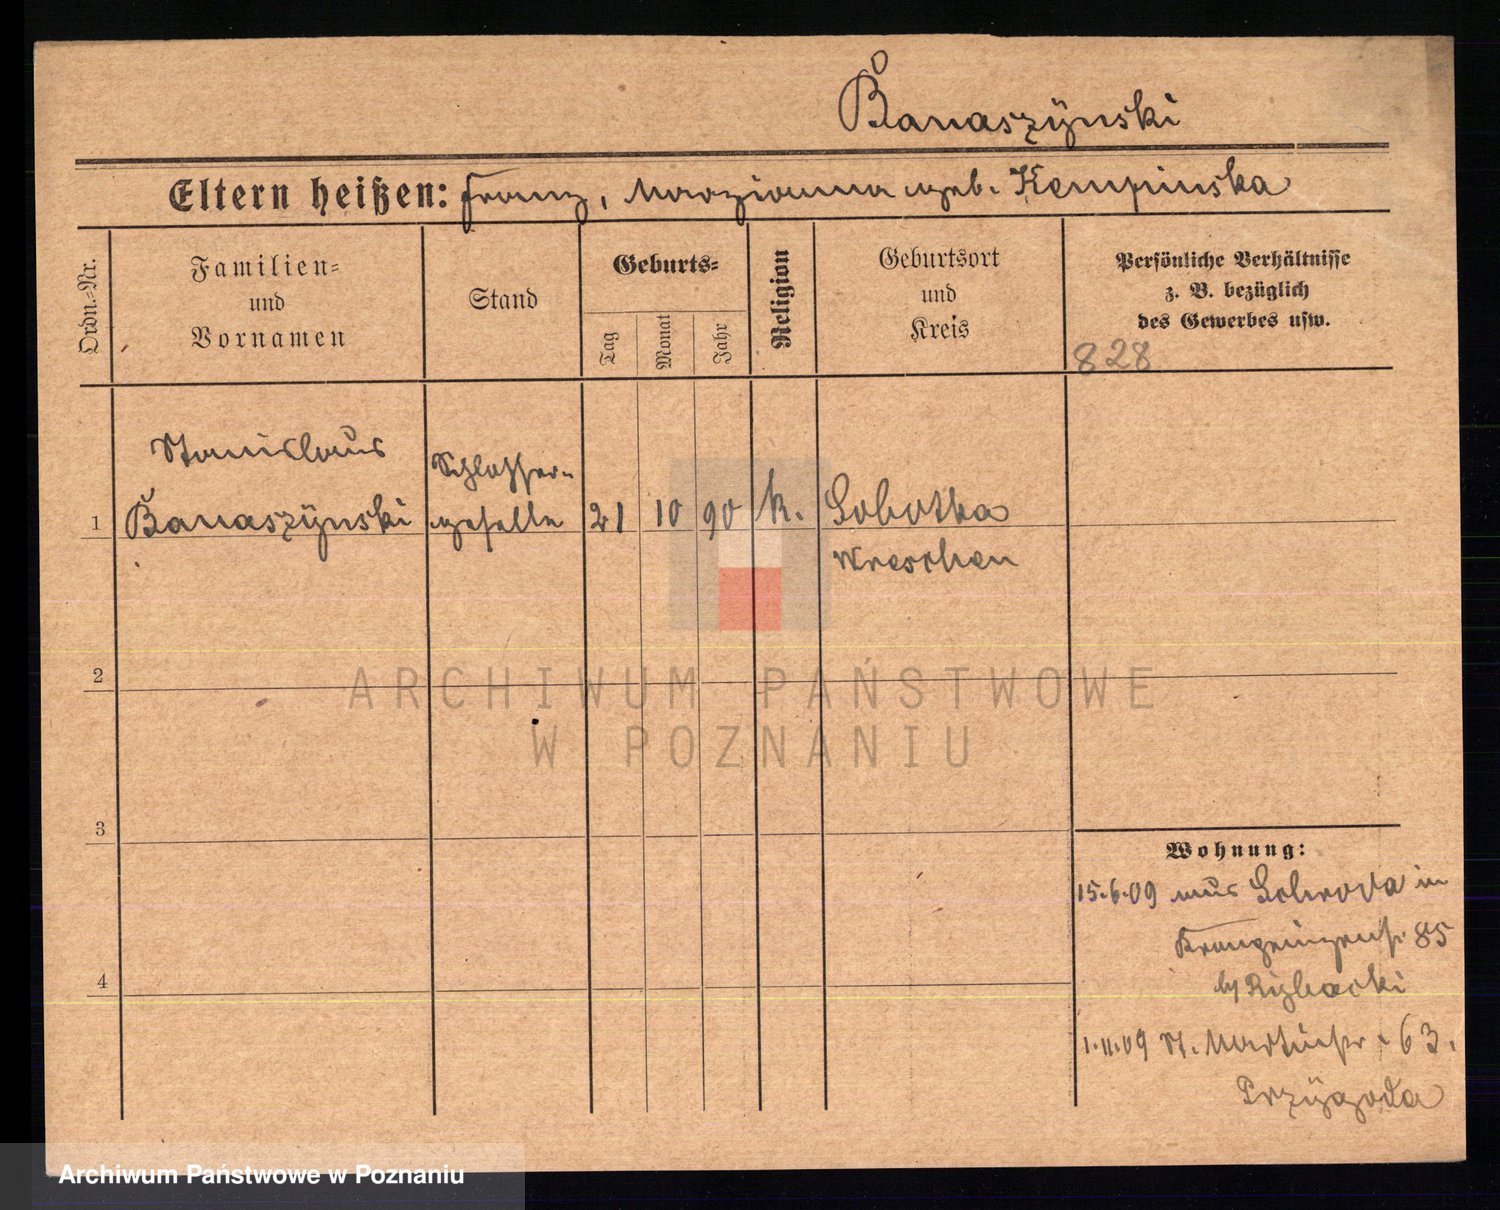 Banaszÿnski
Eltern heißen: Franz, Marzianna geb. Kempinska
Ordn.-Nr.
Familien-
und
Vornamen
Stand
Geburts-
Tag
Monat
Jahr
Religion
Geburtsort
und
Kreis
Persönliche Verhältnisse
z. B. bezüglich
des Gewerbes usw.
828
1
Stanislaus
Banaszÿnski
Schlosser-
geselle
21
10
90
k.
Sobotka
Wreschen
2
3
4
Wohnung:
15.6.09 aus Schroda in
Kronprinzenstr 85
b/ Rÿbacki
1.11.09 St. Martinstr. 63.
Przÿgoda
ARCHIWUM PAŃSTWOWE
W POZNANIU
Archiwum Państwowe w Poznaniu